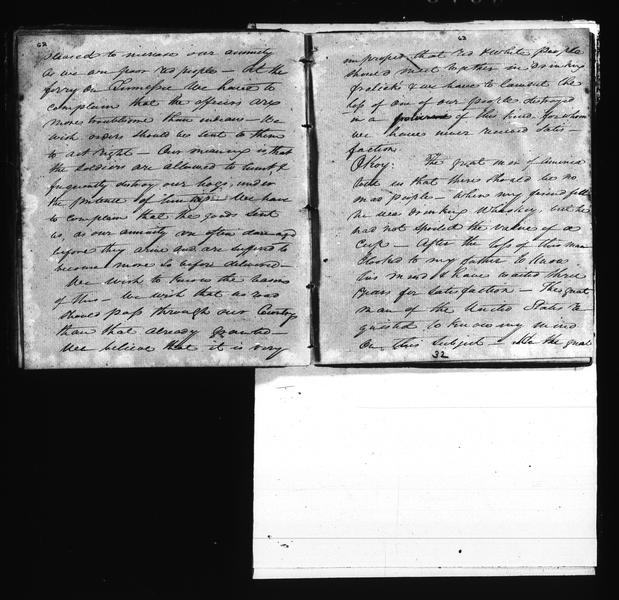 62
to increase our annuity
as we are poor red people – At the
ferry on we have to
complain that the officers are
more troublesome than indians – We
wish orders should be sent to them
to act right – Our meaning is that
the soldiers are allowed to hunt &
frequently destroy our hogs, under
the pretence of hunting – We have
to complain that the goods sent
us, as our annuity are often damaged
before they arive and are suffered to
become more so before delivered –
We wish to know the reason
of this – We wish that no road
should pass through our Country
than that already granted –
We believe that it is very
63
improper that red & white people
should meet together in drinking
frolicks & we have to lament the
loss of one of our people destroyed
in a of this kind, for whom
we have never received satis-
faction
Okoy. The great man of America
told us that there should be no
mad people – When my friend fell
he was drinking Whiskey, but he
had not spoiled the value of a
cup – After the loss of this man
I to my father to know
his mind & have waited three
years for satisfaction – The great
man of the United States re-
quested to know my mind
on this subject – the great
32